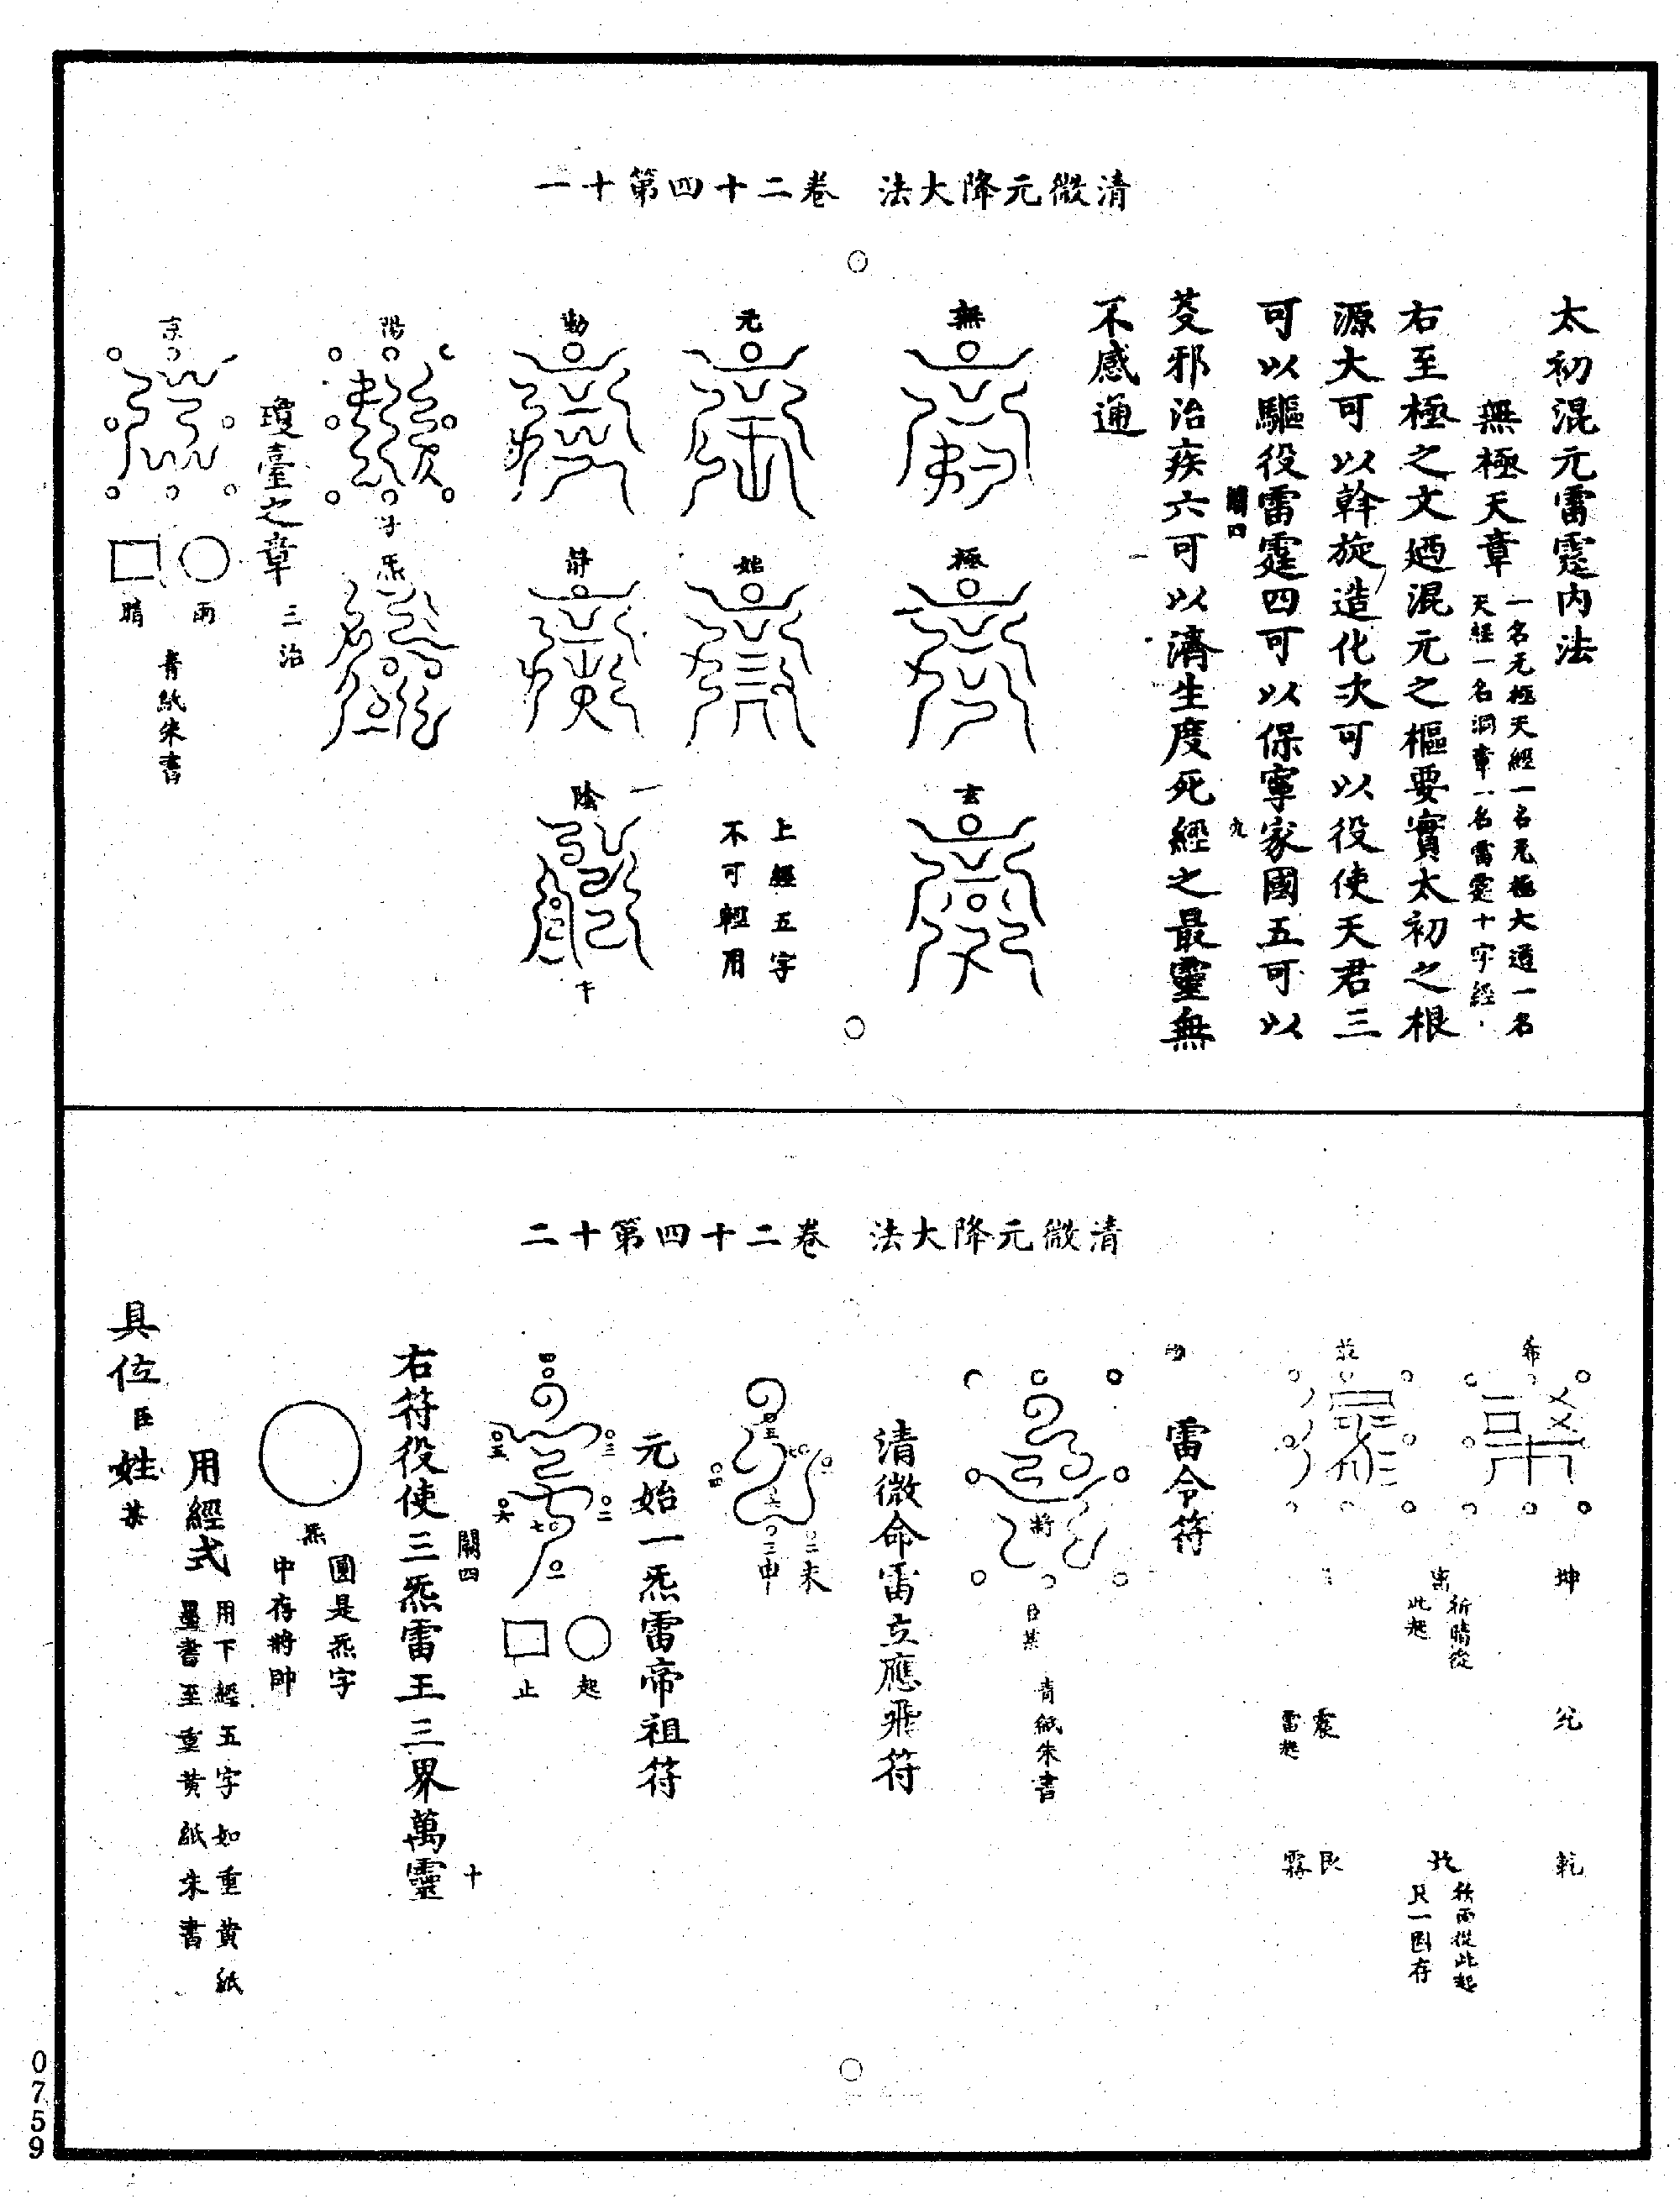 清微元降大法　卷二十四第十一
太初混元雷霆内法
無極天章
一名无極天經一名无極大道一名
天經一名洞章一名雷霆十字經
右至極之文廼混元之樞要實太初之根
源大可以斡旋造化次可以役使天君三
可以驅役雷霆四可以保寧家國五可以
闢四　九
芟邪治疾六可以濟生度死經之最靈無
不感通
無
極
玄
元
始
上經五字
不可輕用
動
靜
陰
午
陽
子
炁
瓊臺之章
三治
京
雨
晴
青紙朱書
清微元降大法　卷二十四第十二
希
坤
兊
乾
离
祈晴從
此起
北
祈雨從此起
只一圈存
震
雷起
艮
霖
雷令符
將
臣某
青紙朱書
清微命雷立應飛符
未
申
元始一炁雷帝祖符
起
止
闢四　十
右符役使三炁雷王三界萬靈
炁
圓是炁字
中存將帥
用經式
用下經五字如重黃紙
墨書至重黃紙朱書
具位臣姓某
0759